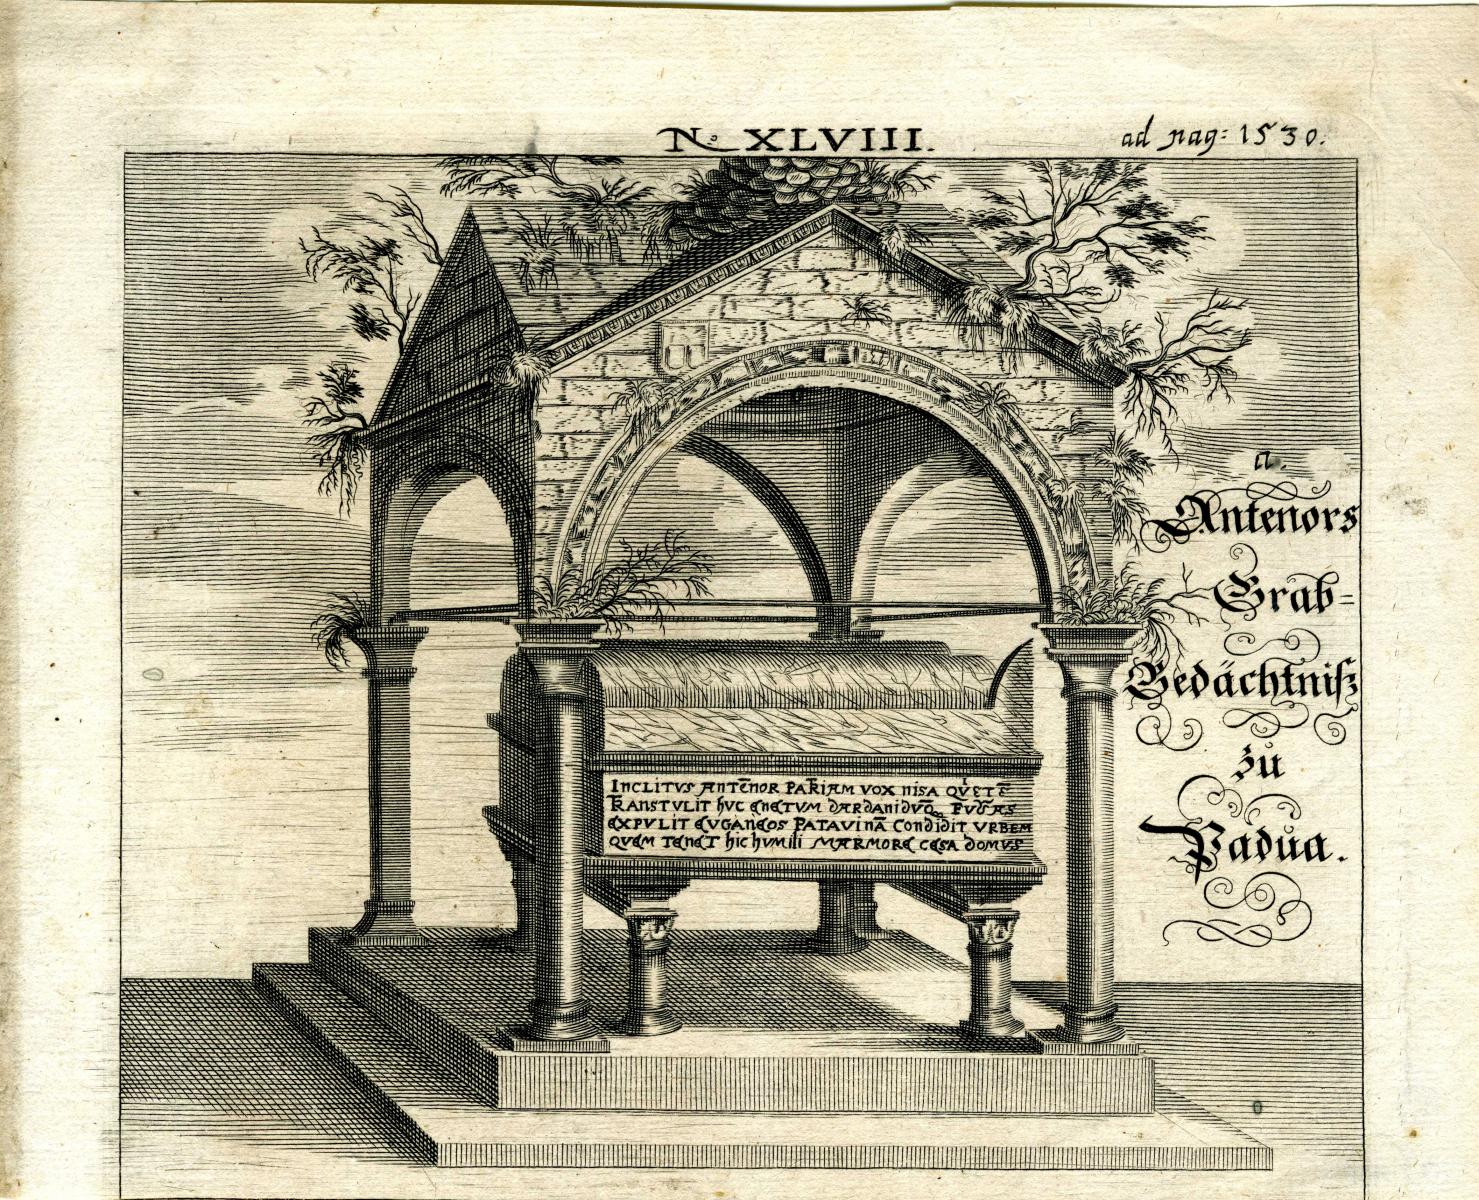 N.º XLVIII.
ad pag: 1530.
a.
Antenors
Grab=
Gedächtniß
zů
Padůa.
INCLITVS ANTĒNOR PATRIAM VOX NISA QVETĒ
TRANSTVLIT HVC ENETVM DARDANIDVQ FVGAS
EXPVLIT EVGANEOS PATAVINĀ CONDIDIT VRBEM
QVEM TENET HIC HVMILI MARMORE CESA DOMVS